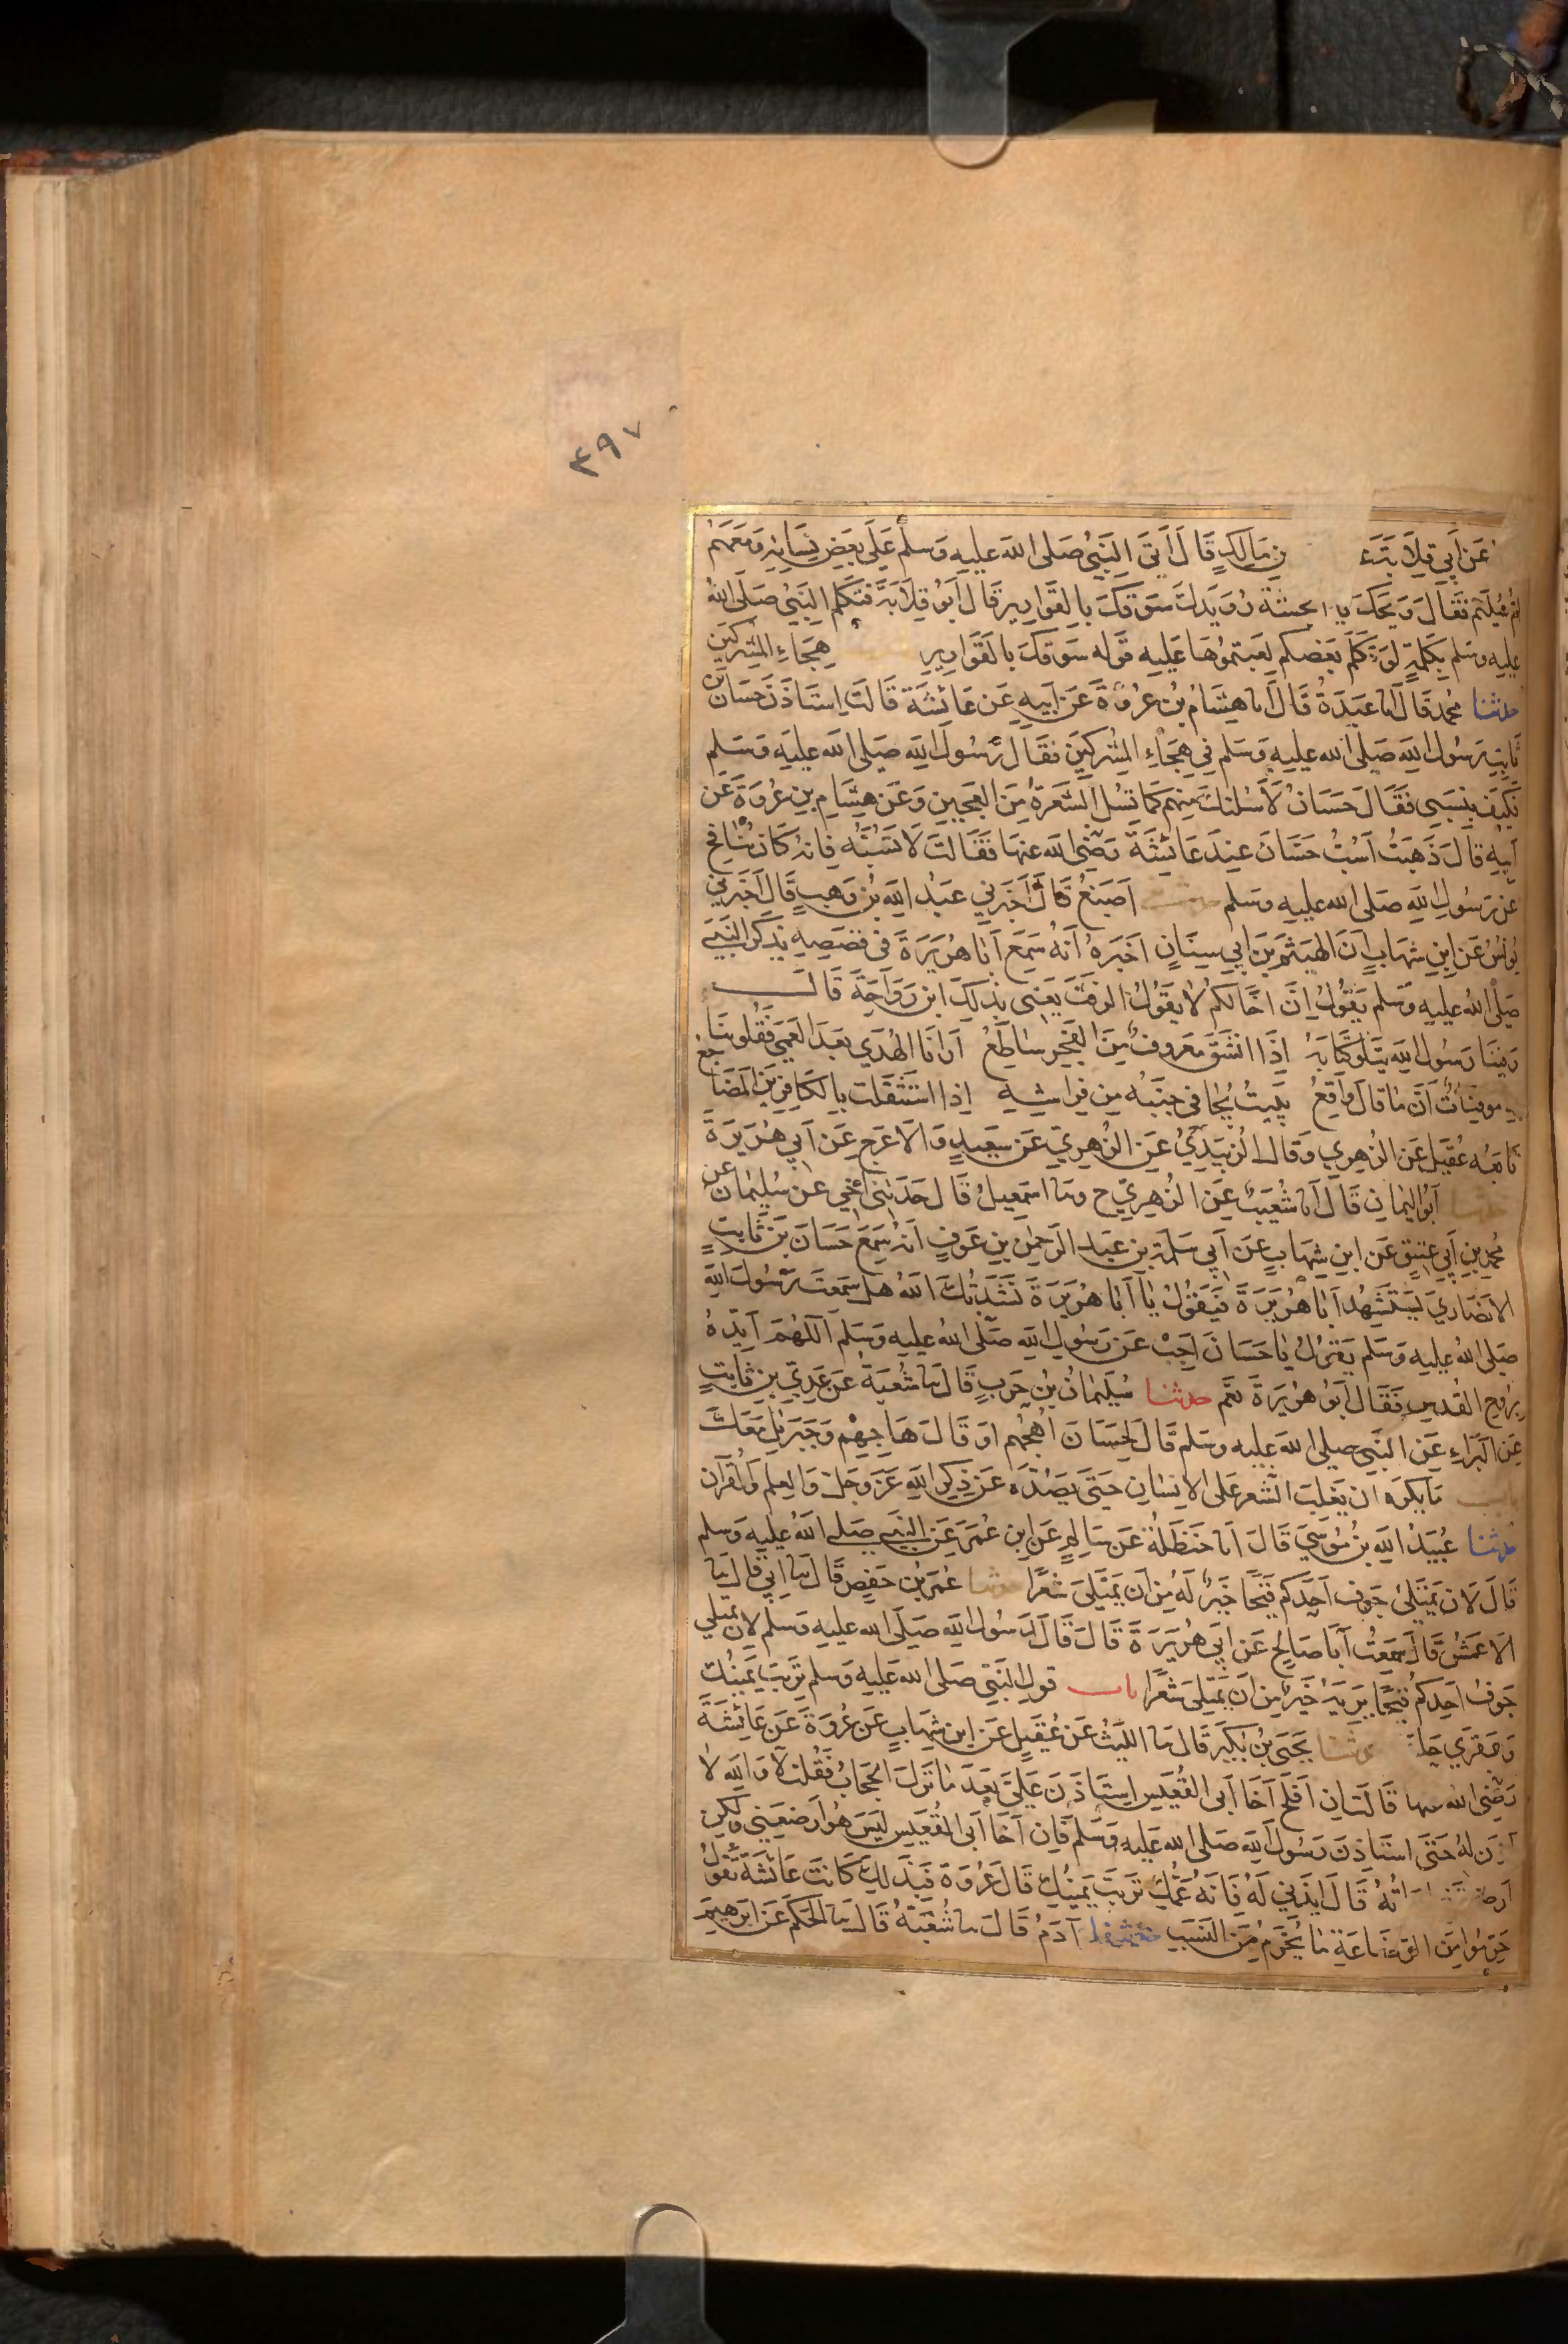 ٣٩٧
عَن أَبي قِلَابَةَ عَ ن مَالِكٍ قَالَ أَتَى النَّبِيُّ صَلى الله عليه وَسلم عَلَى بَعضِ نِسَائِه وَمَعَهُم
أُم سُلَيم فقَالَ وَيحَك يا انجشة رُوَيدَك سَوقَكَ بِالقَوَارِيرِ قَالَ أبُو قِلَابَة فتكلم النَّبيُّ صَلى الله
عليه وسَلم بكَلِمَةٍ لَو تَكَلَّمَ بَعضكم لعِبتموُهَا عَليه قَوله سَوقكَ بالقَوَارِيرِ هِجَاءِ المُشركين
حدثنا محمد قَالَ انا عَبدَةُ قَالَ انا هِشَامُ بنُ عُروَةَ عَن أَبيهِ عَن عَائِشَة قَالَت اِستَاذَنَ حَسَانُ بن
ثَابِت رَسُول الله صَلى الله عليه وَسَلم فِي هِجَاءِ المشركِينَ فقَالَ رَسُولُ الله صَلى الله عليه وَسَلم
فَكيَف بِنَسَبِي فَقَالَ حَسَانُ لَأسُلنكَ مِنهم كمَا تسَل الشَّعَرةُ مِنَ العَجِينِ وَعَن هِشَامِ بنِ عُروَةَ عَن
أبيه قالَ ذَهَبتُ أسُبُّ حَسَّانَ عِندَ عَائِشَة رَضِيَ الله عنهَا فَقَالَت لَا تسُبّه فَإنه كَانَ يُنَافِح
عن رَسُولِ الله صَلى الله عليه وَسَلم حدثنا أصبَغُ قَالَ أَخبَرني عَبدُ الله بن وَهبٍ قَالَ أخبَرَني
يُونسُ عَن ابنِ شهَابٍ أنَّ الهَيثمَ بنَ أبي سِنَانٍ أخبَرهُ أَنَّهُ سَمِعَ أبَا هُرَيرَةَ في قصَصِهِ يَذكُر النَّبيَّ
صَلى الله عليه وَسَلم يَقُولُ إنَّ أخًا لكُم لا يَقُولُ الرفَثَ يَعني بذلكَ ابن رَوَاحَة قَالَ
وفينَا رَسُول الله يَتلُو كتَابَهُ إذَا انشَقَّ مَعروفٌ مِنَ الفَجرِ سَاطِعُ أرَانَا الهُدَى بَعدَ العَمَى فَقُلوبنَا
به موقنَاتٌ أنَّ مَا قالَ وَاقعُ يَبِيتُ يُجَافي جَنبَه مِن فِراشِهِ إذا استَثقَلت بالكَافِرينَ المضَاجعُ
تَابعه عُقَيل عَن الزُهري وَقَالَ الزُّبَيدِيُّ عَنِ الزُّهرِيِّ عَن سَعِيدٍ وَالأَعرَجِ عَن أبي هُرَيرَةَ
حدثنا أبُو اليَمَانِ قَالَ أنا شُعَيبٌ عَنِ الزُهرِيِّ ح وثنا اسمَعيلُ قَالَ حَدَّثني أخي عَن سُلَيمَان عَن
محمد بنِ أبي عَتيقٍ عَن ابنِ شهَابٍ عَن أبي سَلَمَةَ بن عَبد الرَّحمٰن بنِ عَوفٍ أنَّهُ سَمعَ حَسَانَ بن ثَابتٍ
الأنصَاريَّ يَستَشهدُ أبَا هُرَيرَةَ فَيقُولُ يَا أبَا هُرَيرَةَ نَشَدتُكَ اللهَ هل سَمعتَ رَسُولَ الله
صَلى الله عليه وَسَلم يَقولُ يَا حَسَانَ أَجِبْ عَن رَسُولِ الله صَلى الله عليه وَسَلم اللهُمَّ أيّدهُ
برُوح القُدسِ فَقَالَ أبُو هُرَيرَةَ نعَم حدثنا سُلَيمَانُ بنُ حَربٍ قَالَ ثنا شُعبَةُ عَن عَدِيِّ بنِ ثَابتٍ
عَنِ البَرَاءِ عَن النَّبي صلى الله عليه وسَلم قَالَ لِحَسَانَ اُهجُهم او قَالَ هَاجِهِم وَجبَريل مَعَكَ
باب مَا يكرَه ان يَغلِبَ الشّعر عَلى الانسَانِ حَتَى يَصُدَّهُ عَن ذِكرِ الله عَزَ وَجَلَّ وَالعِلم وَالقُرآن
حدثنا عُبَيدُ الله بنُ مُوسَى قَالَ انا حَنظَلة عَن سَالِمٍ عَن ابن عُمَرَ عَنِ النَّبي صَلى الله عليه وَسلم
قَالَ لَان يَمتَلئَ جَوف أحَدكم قَيحًا خَيرٌ لَهُ مِن أن يَمتَلِيَ شعرًا حدثنا عُمَر بن حَفصٍ قَالَ ثنا أبي قالَ ثنا
الأعمَشُ قَالَ سَمعتُ أبَا صَالِحٍ عَن أبي هُرَيرَةَ قَالَ قَالَ رَسُول الله صَلى الله عليه وَسلم لأن يمتلي
جَوفُ أحَدِكُم قَيحًا يَرِيَهُ خَيرٌ مِن أن يَمتَلي شِعرًا باب قولِ النَّبيّ صَلى الله عَليه وَسلم تَرِبَت يَمينُك
وَعَقرَى حَلقَى حدثنا يَحيَى بنُ بُكَيرٍ قَالَ ثنا اللَّيثُ عَن عُقَيلٍ عَن ابن شهَابٍ عَن عُروَةَ عَن عَائِشَةَ
رَضِيَ الله عنها قَالَت ان أفلَحَ أخَا أبي القُعَيس استَاذَنَ عَلَيَّ بَعدَ مَا نَزَلَ الحجَابُ فَقُلت لا وَالله لا
آذن لهُ حَتَى استَاذنَ رَسُولَ الله صَلى الله عَليه وَسَلم فَإن أخَا أبي القُعَيس لَيسَ هُوَ أرضَعَني ولَكن
أرضعتني امراتُهُ قَالَ ايذَني لَهُ فَإنَّهُ عَمُّكِ تَربَت يَمينُكِ قَالَ عُروَة فَبذَلكَ كَانَت عَائشَةُ تَقُولُ
حَرّمُوا مِنَ الرضَاعَة مَا يُحرَم مِنَ النَّسَب حدثنا آدَمُ قَالَ ثنا شُعبَةُ قَالَ ثنا الحَكَمُ عَن ابرَهِيمَ